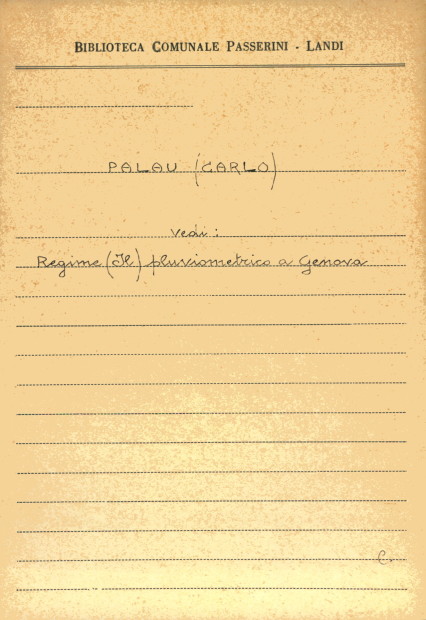 BIBLIOTECA COMUNALE PASSERINI - LANDI
PALAU (CARLO)
vedi:
Regime (Il) pluviometrico a Genova
C.